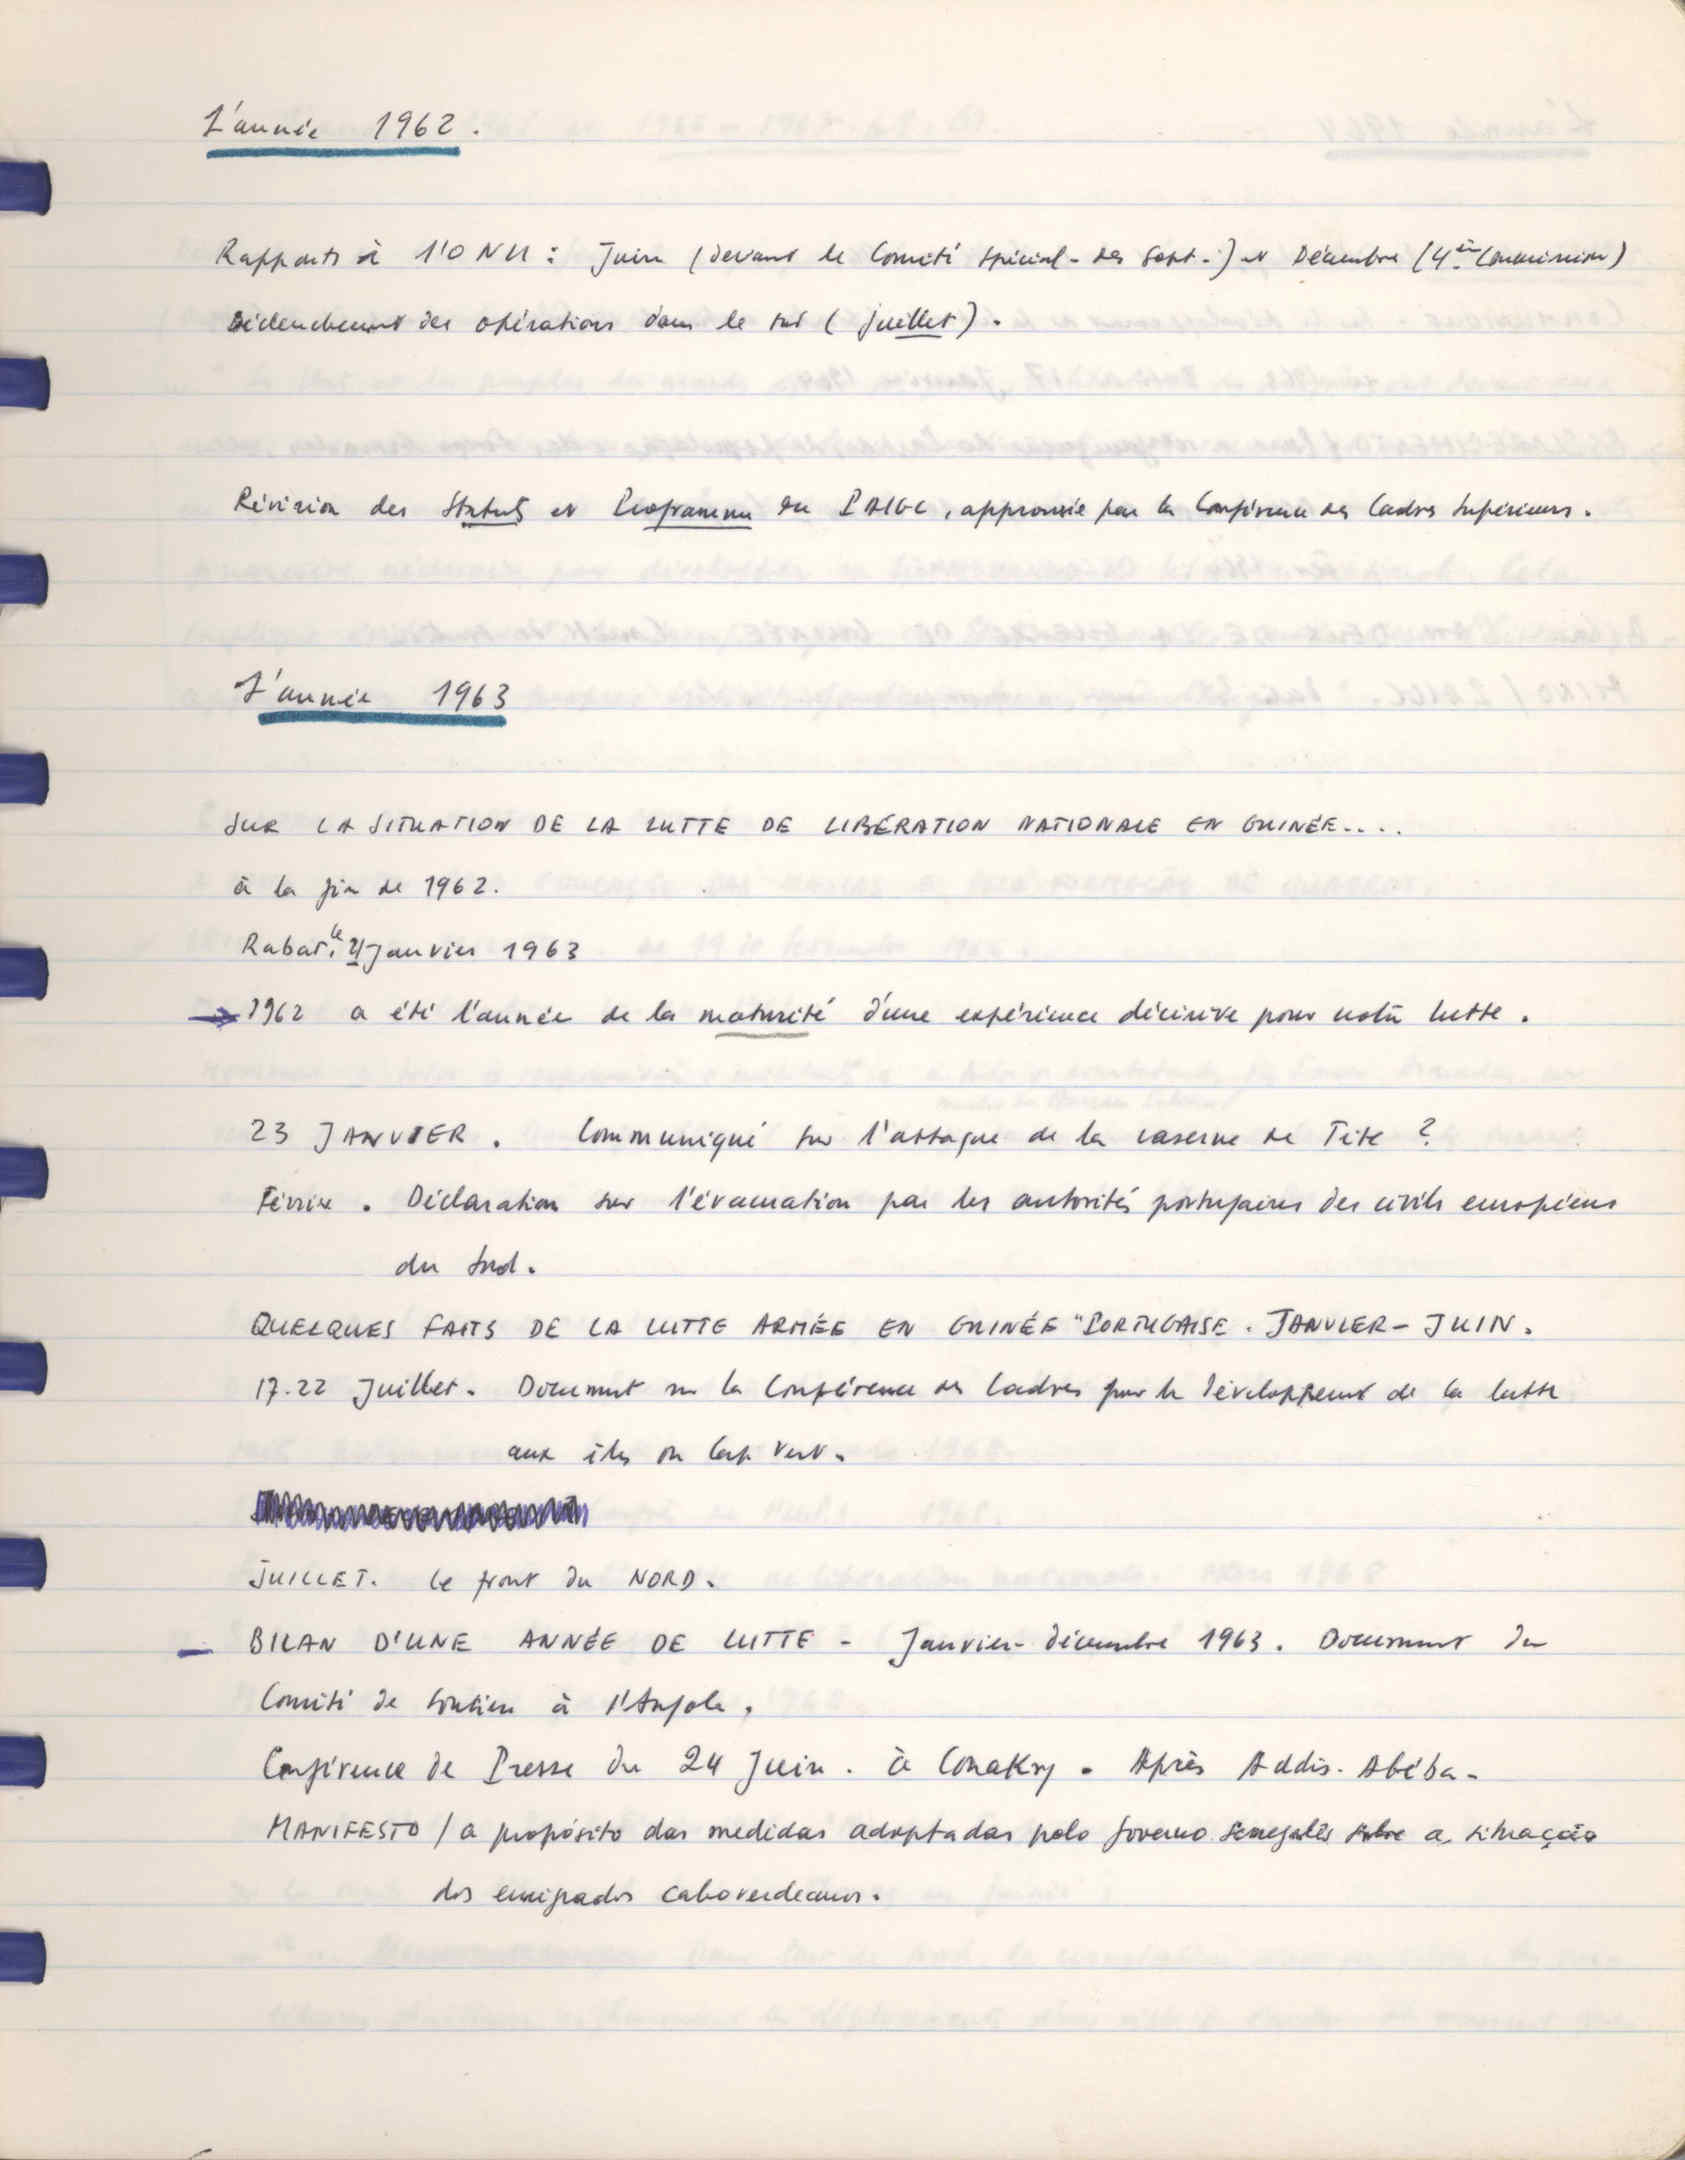 L'année 1962.
Rapports à l'ONU : Juin (devant le Comité spécial - des Sept -) et Décembre (4ème Commission)
Déclenchement des opérations dans le sud (juillet).
Révision des Statuts et Programme du PAIGC, approuvée par la Conférence des Cadres Supérieurs.
L'année 1963
SUR LA SITUATION DE LA LUTTE DE LIBÉRATION NATIONALE EN GUINÉE....
à la fin de 1962.
Rabat, le Janvier 1963
1962 a été l'année de la maturité d'une expérience décisive pour notre lutte.
23 JANVIER. Communiqué sur l'attaque de la caserne de Tite ?
Février. Déclaration sur l'évacuation par les autorités portugaises des civils européens
du Sud.
QUELQUES FAITS DE LA LUTTE ARMÉE EN GUINÉE "PORTUGAISE. JANVIER - JUIN.
17.22 Juillet. Document sur la Conférence des Cadres pour le développement de la lutte
aux îles du Cap Vert.
JUILLET. Le front du NORD.
- BILAN D'UNE ANNÉE DE LUTTE - Janvier-décembre 1963. Document du
Comité de soutien à l'Angola.
Conférence de Presse du 24 Juin. à Conakry. Après Addis. Abéba -
MANIFESTO / a propósito das medidas adoptadas pelo governo Senegalês sobre a situação
dos emigrados caboverdeanos.